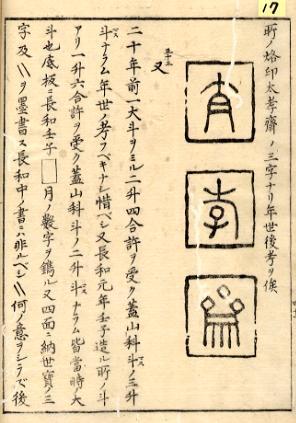 17
所ノ烙印太孝齋ノ三字ナリ年世後考ヲ俟
又
二十年前一大斗ヲミル二升四合許ヲ受ク蓋山科斗ノ三升
斗ナラム年世ノ考フベキナシ惜ベシ又長和元年壬子造ル所ノ斗
アリ一升六合許ヲ受ク蓋山科斗ノ二升斗ナラム皆當時ノ大
斗也底板ニ長和壬子□月ノ數字ヲ鐫ル又四面ニ納世寶ノ三
字及〵〵ヲ墨書ス長和中ノ書ニハ非ルベシ〵〵何ノ意ヲシラデ後